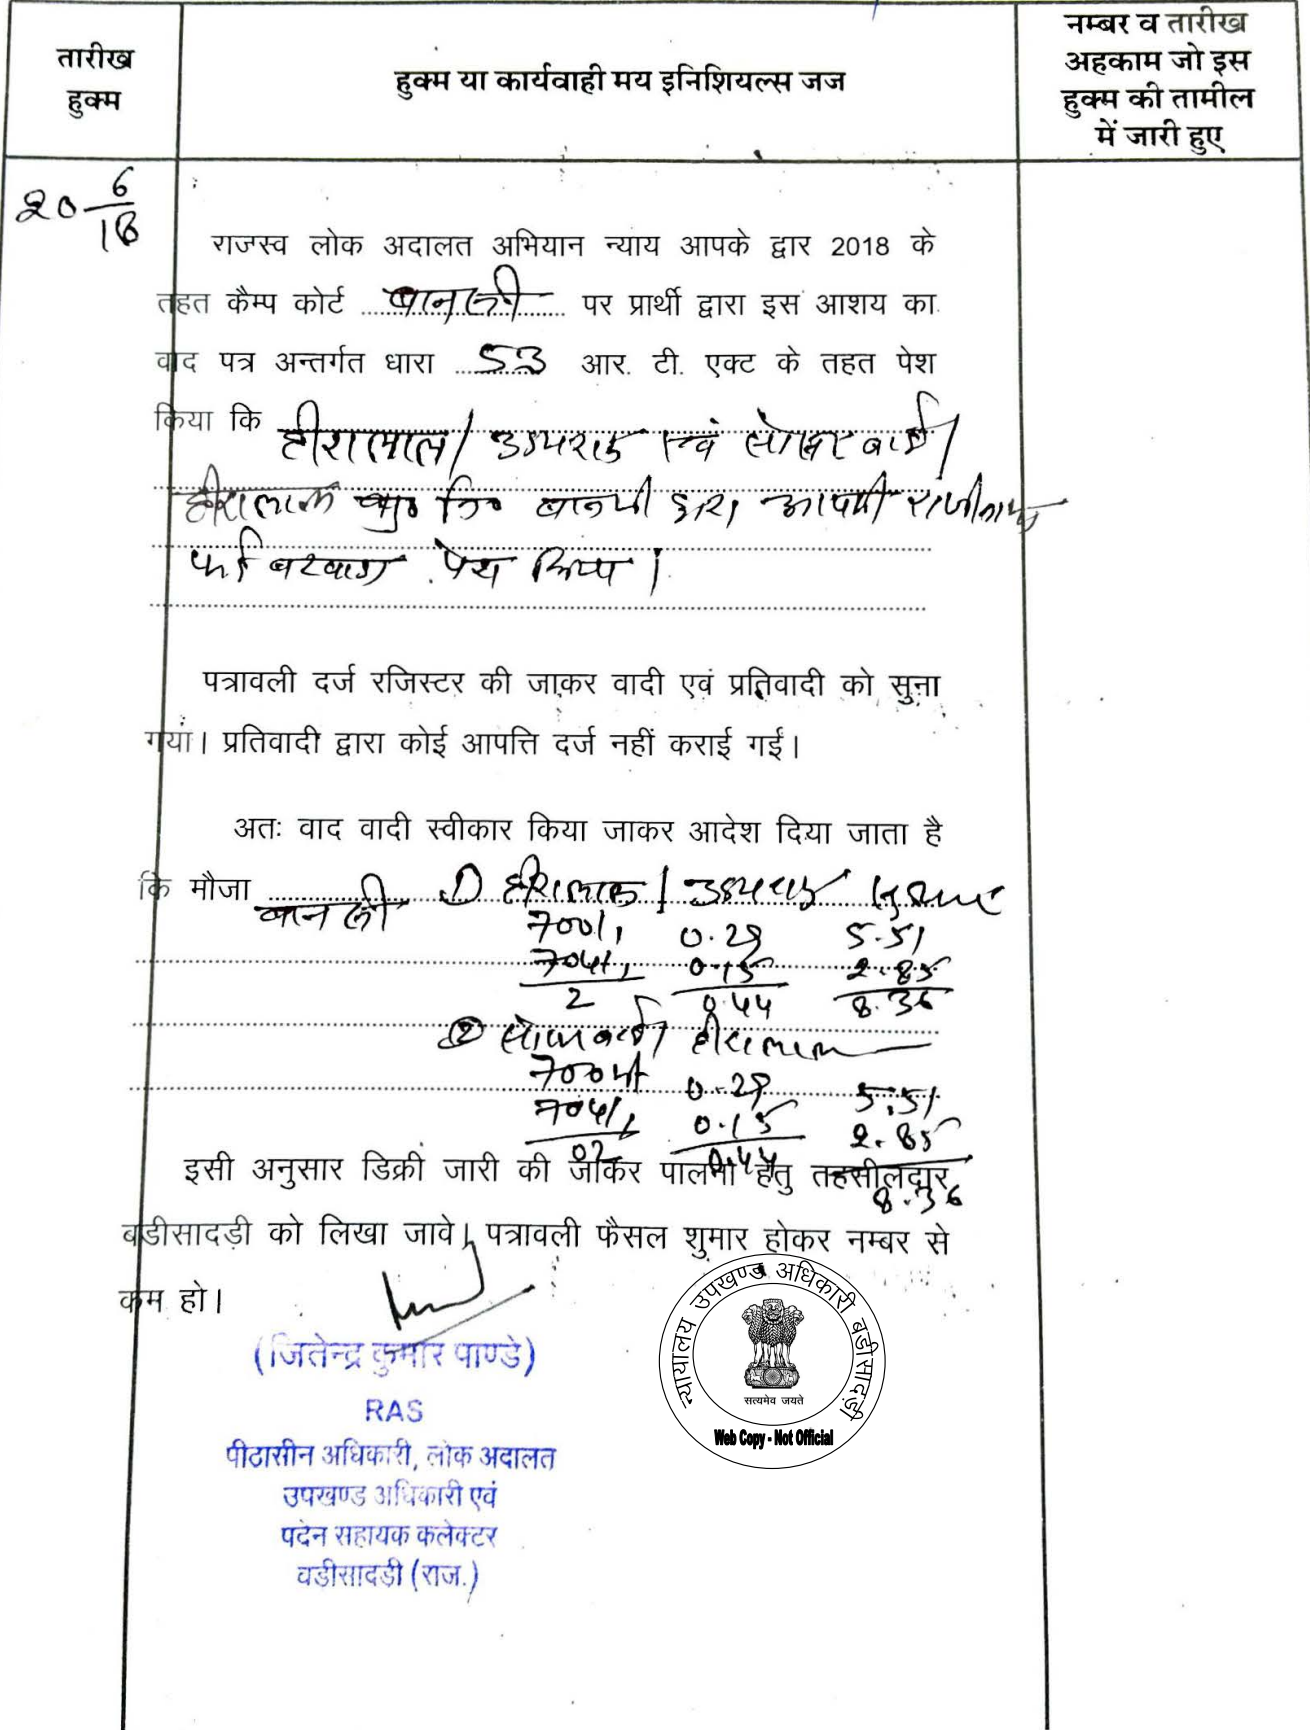 तारीख
हुक्म
हुक्म या कार्यवाही मय इनिशियल्स जज
नम्बर व तारीख
अहकाम जो इस
हुक्म की तामील
में जारी हुए
20 6/18
राजस्व लोक अदालत अभियान न्याय आपके द्वार 2018 के
तहत कैम्प कोर्ट बानसी पर प्रार्थी द्वारा इस आशय का
वाद पत्र अन्तर्गत धारा 53 आर. टी. एक्ट के तहत पेश
किया कि हीरालाल/
हीरालाल द्वारा आपसी
पेश किया।
पत्रावली दर्ज रजिस्टर की जाकर वादी एवं प्रतिवादी को सुना
गया। प्रतिवादी द्वारा कोई आपत्ति दर्ज नहीं कराई गई।
अतः वाद वादी स्वीकार किया जाकर आदेश दिया जाता है
कि मौजा बानसी ① हीरालाल/
700/1 0.29 5.51
704/1 0.15 2.85
2 0.44 8.36
② हीरालाल
0.29 5.51
704/1 0.15 2.85
02 0.44 8.36
इसी अनुसार डिक्री जारी की जाकर पालना हेतु तहसीलदार
बडीसादड़ी को लिखा जावे। पत्रावली फैसल शुमार होकर नम्बर से
कम हो।
(जितेन्द्र कुमार पाण्डे)
RAS
पीठासीन अधिकारी, लोक अदालत
उपखण्ड अधिकारी एवं
पदेन सहायक कलेक्टर
बडीसादड़ी (राज.)
न्यायालय उपखण्ड अधिकारी बडीसादड़ी
सत्यमेव जयते
Web Copy - Not Official